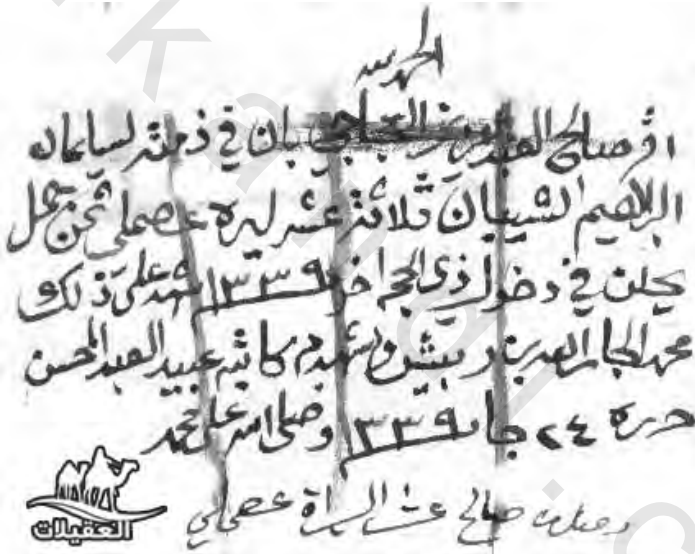 الحمد لله
اقر صالح العبد العزيز بان في ذمته لسليمان
البراهيم الشيبان ثلاثة عشر ليره عصملي ثمن جمل
يحلن في دخول ذي الحجة آخر ١٣٣٩ شهد على ذلك
محمد الجار الله بن ربيش وشهد به كاتبه عبيد العبد المحسن
حرره ٢٤ جا ١٣٣٩ وصلى الله على محمد
وصلت صالح عشر ليرات عصملي
العقيلات